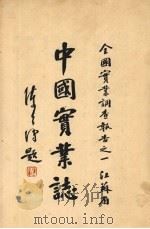 全國實業調查報告之一 江蘇省
中國實業誌
陳公博題